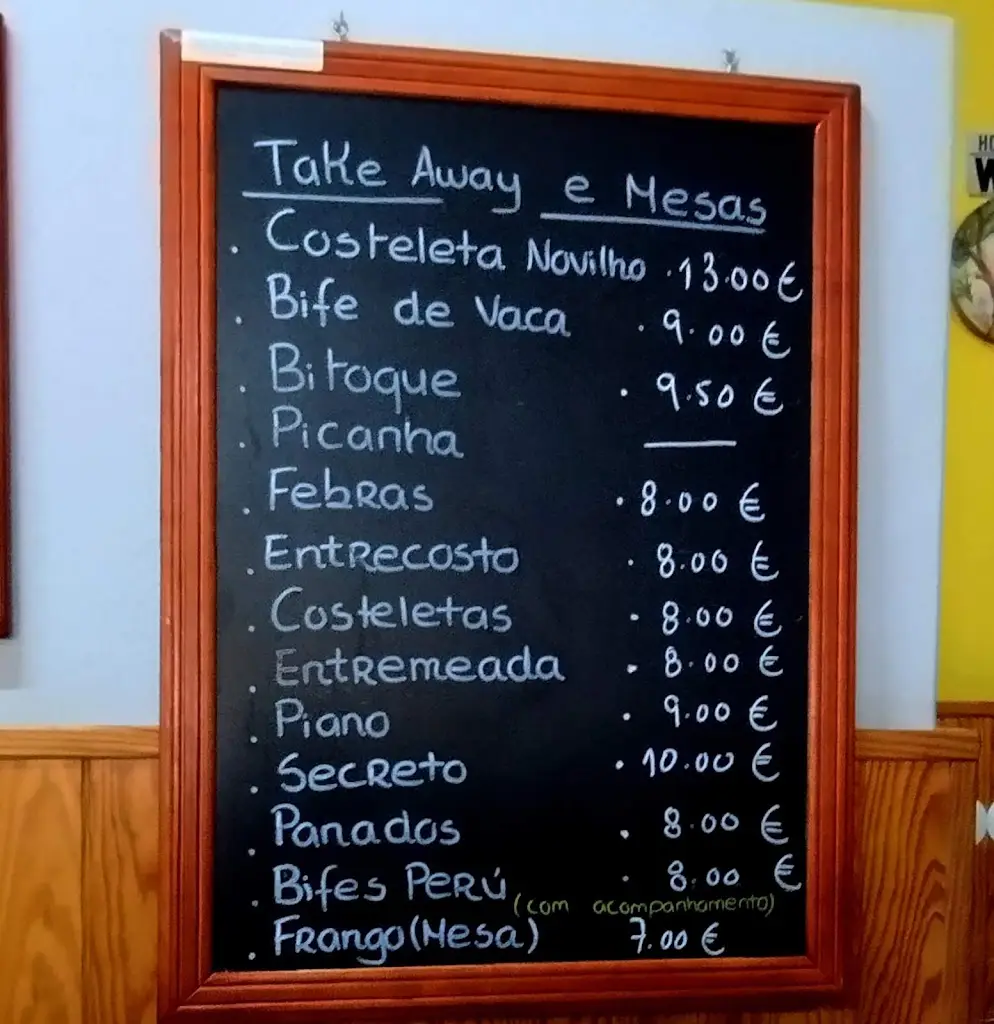 Take Away e Mesas
. Costeleta Novilho . 13.00 €
. Bife de Vaca . 9.00 €
. Bitoque . 9.50 €
. Picanha ——
. Febras . 8.00 €
. Entrecosto . 8.00 €
. Costeletas . 8.00 €
. Entremeada . 8.00 €
. Piano . 9.00 €
. Secreto . 10.00 €
. Panados . 8.00 €
. Bifes Perú . 8.00 €
(com acompanhamento)
. Frango (Mesa) 7.00 €